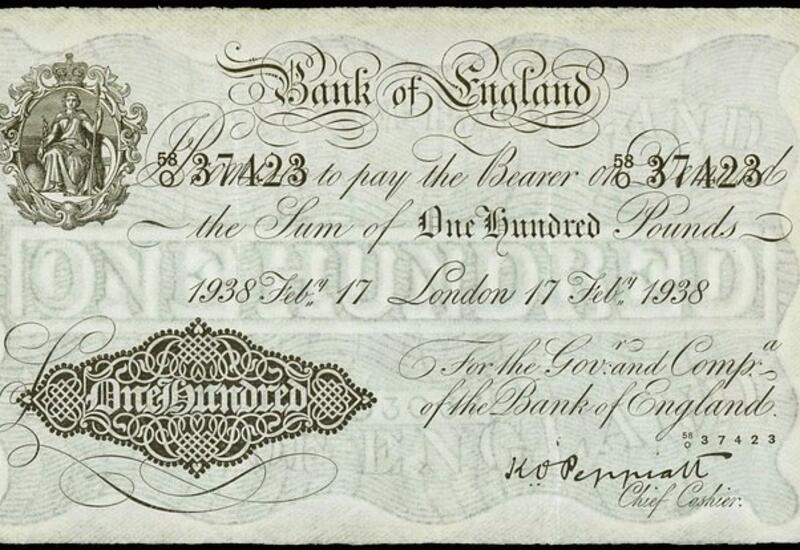 Bank of England
58/O 37423 58/O 37423
Promise to pay the Bearer on Demand
the Sum of One Hundred Pounds
1938 Feby 17 London 17 Feby 1938
For the Govr and Compa
One Hundred
of the Bank of England.
58/O 37423
K.O. Peppiatt
Chief Cashier.
ONE HUNDRED